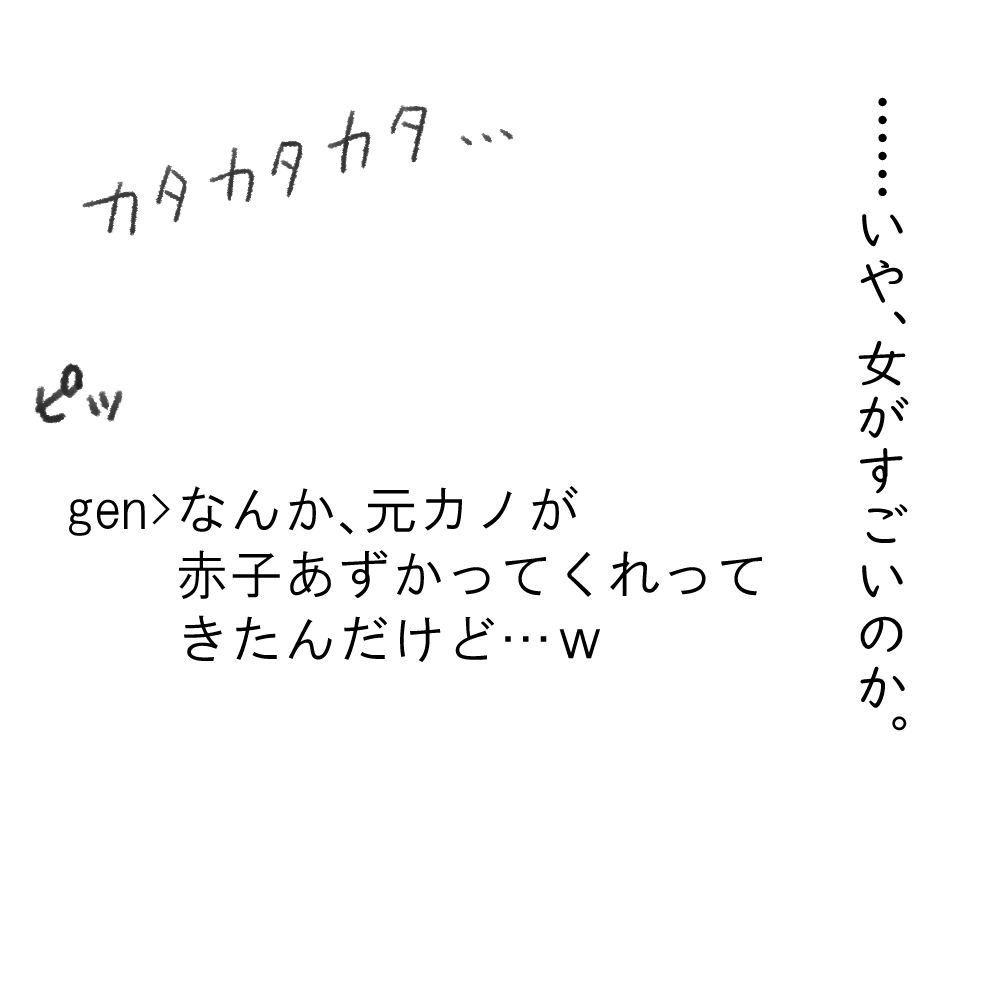 ……いや、女がすごいのか。
カタカタカタ…
ピッ
gen>なんか、元カノが
赤子あずかってくれって
きたんだけど…ｗ